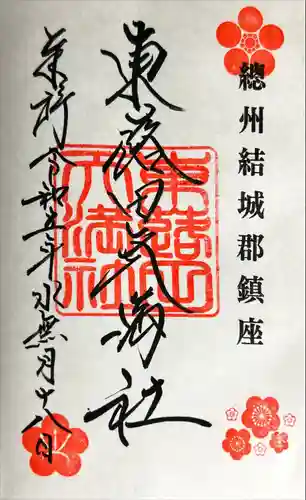 總州結城郡鎮座
東蕗田天満社
奉拝 令和五年水無月十八日